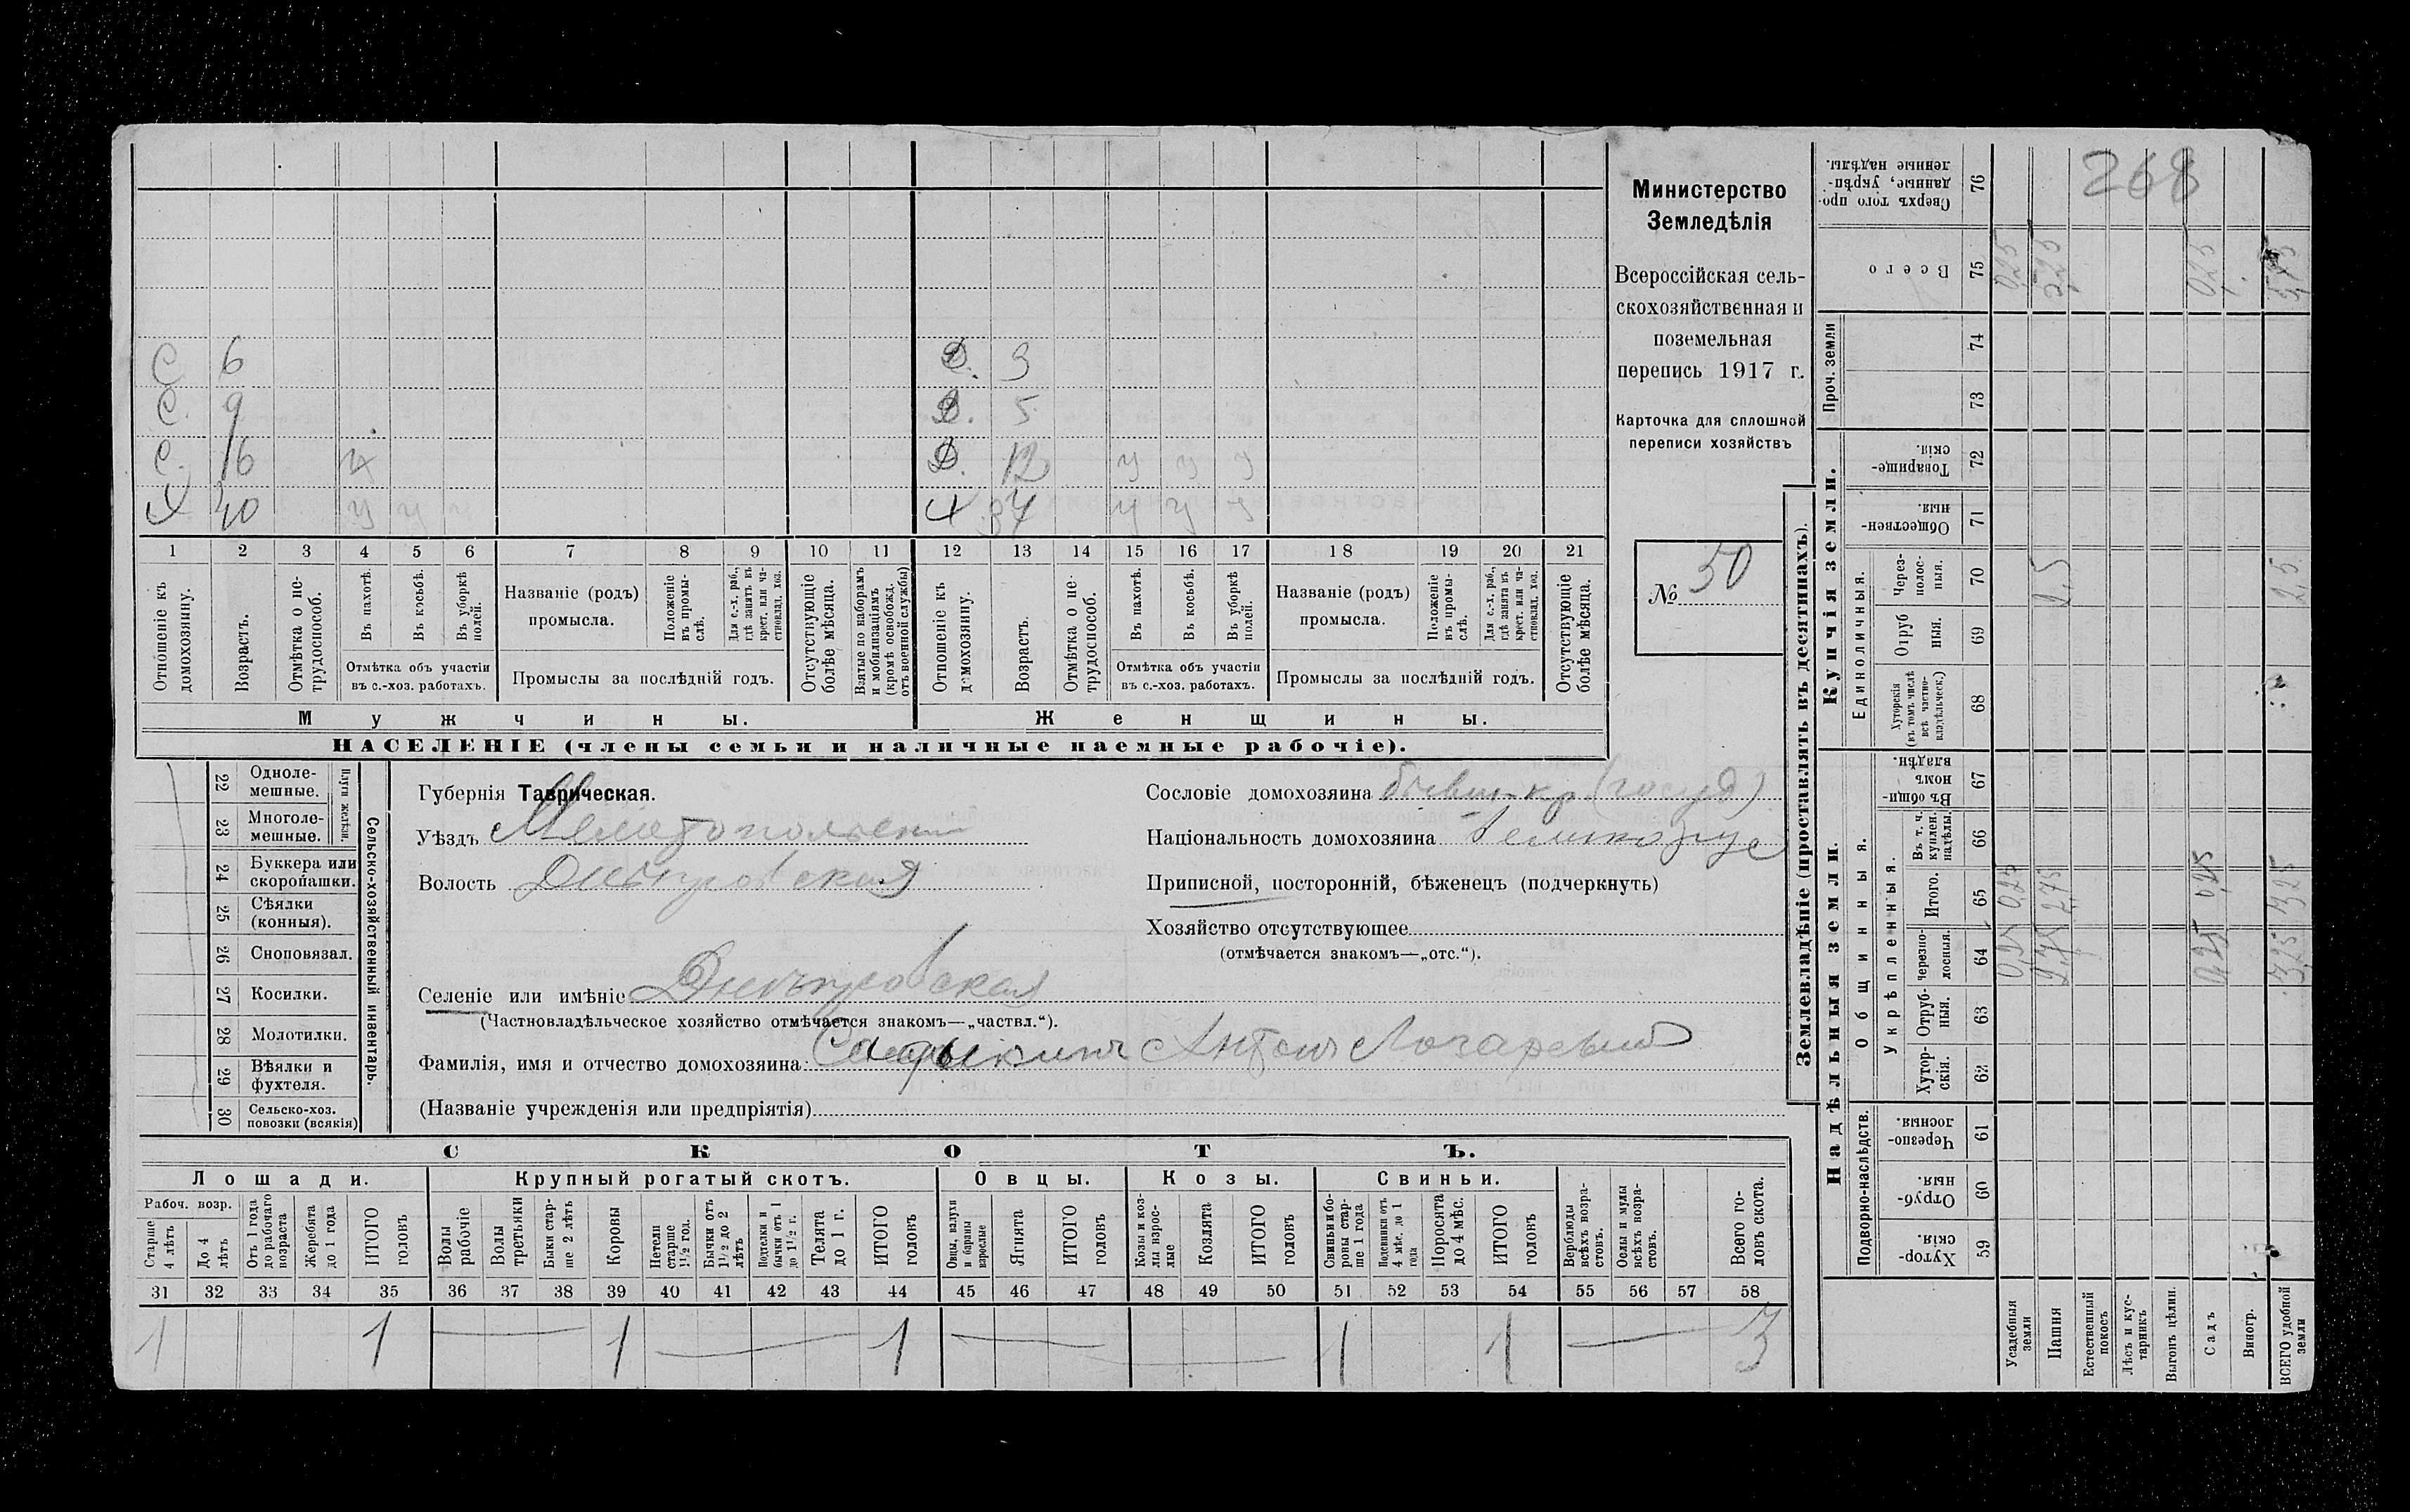 Министерство
Земледѣлія
Всероссійская сель-
скохозяйственная и
поземельная
перепись 1917 г.
Карточка для сплошной
переписи хозяйствъ
№ 50
268
С 6
С. 9
С. 16 у
Х 40 у у у
Д. 3
Д. 5
Д. 12 у у у
Х 37 у у у
1 2 3 4 5 6 7 8 9 10 11 12 13 14 15 16 17 18 19 20 21
Отношеніе къ домохозяину.
Возрастъ.
Отмѣтка о не-трудоспособ.
Въ пахотѣ.
Въ косьбѣ.
Въ уборкѣ полей.
Отмѣтка объ участіи
въ с.-хоз. работахъ.
Названіе (родъ)
промысла.
Положеніе въ промы-слѣ.
Для с.-х. раб., гдѣ занятъ въ крест. или ча-стновлад. хоз.
Промыслы за послѣдній годъ.
Отсутствующіе болѣе мѣсяца.
Взятые по наборамъ и мобилизаціямъ (кромѣ освобожд. отъ военной службы)
Отношеніе къ домохозяину.
Возрастъ.
Отмѣтка о не-трудоспособ.
Въ пахотѣ.
Въ косьбѣ.
Въ уборкѣ полей.
Отмѣтка объ участіи
въ с.-хоз. работахъ.
Названіе (родъ)
промысла.
Положеніе въ промы-слѣ.
Для с.-х. раб., гдѣ занята въ крест. или ча-стновлад. хоз.
Промыслы за послѣдній годъ.
Отсутствующіе болѣе мѣсяца.
Мужчины.
Женщины.
НАСЕЛЕНІЕ (члены семьи и наличные наемные рабочіе).
22 Одноле-мешные.
23 Многоле-мешные.
24 Буккера или скоропашки.
25 Сѣялки (конныя).
26 Сноповязал.
27 Косилки.
28 Молотилки.
29 Вѣялки и фухтеля.
30 Сельско-хоз. повозки (всякія)
Сельско-хозяйственный инвентарь.
Губернія Таврическая.
Уѣздъ Мелитопольскій
Волость Днѣпровская
Селеніе или имѣніе Днѣпровская
(Частновладѣльческое хозяйство отмѣчается знакомъ—„частвл.“).
Фамилія, имя и отчество домохозяина: Антонъ
(Названіе учрежденія или предпріятія)
Сословіе домохозяина бывш. кр (госуд)
Національность домохозяина Великорус
Приписной, посторонній, бѣженецъ (подчеркнуть)
Хозяйство отсутствующее
(отмѣчается знакомъ—„отс.“).
СКОТЪ.
Лошади.
Крупный рогатый скотъ.
Овцы.
Козы.
Свиньи.
Рабоч. возр.
Старше 4 лѣтъ
До 4 лѣтъ
Отъ 1 года до рабочаго возраста
Жеребята до 1 года
ИТОГО головъ
Волы рабочіе
Волы третьяки
Быки стар-ше 2 лѣтъ
Коровы
Нетели старше 1½ год.
Бычки отъ 1½ до 2 лѣтъ
Подтелки и бычки отъ 1 до 1½ г.
Телята до 1 г.
ИТОГО головъ
Овцы, валухи и бараны взрослые
Ягнята
ИТОГО головъ
Козы и коз-лы взрос-лые
Козлята
ИТОГО головъ
Свиньи и бо-ровы стар-ше 1 года
Подсвинки отъ 4 мѣс. до 1 года
Поросята до 4 мѣс.
ИТОГО головъ
Верблюды всѣхъ возра-стовъ.
Ослы и мулы всѣхъ возра-стовъ.
Всего го-ловъ скота.
31 32 33 34 35 36 37 38 39 40 41 42 43 44 45 46 47 48 49 50 51 52 53 54 55 56 57 58
1 1 1 1 1 1 3
Землевладѣніе (проставлять въ десятинахъ).
Надѣльныя земли.
Купчія земли.
Проч. земли
Подворно-наслѣдств.
Общинныя.
Укрѣпленныя.
Единоличныя.
76 Сверхъ того про-данные, укрѣп-ленные надѣлы.
75 Всего 0,25 0,25
74
73
72 Товарище-скія.
71 Обществен-ныя.
70 Через-полос-ныя. 2,5 2,5
69 Отруб ныя.
68 Хуторскія (въ томъ числѣ всѣ частно-владѣльческ.)
67 Въ общи-номъ владѣн.
66 Въ т. ч. куплен. надѣлы
65 Итого. 0,25 2,75 0,25 3,25
64 черезпо-лосныя. 0,25 2,75 0,25 3,25
63 Отруб-ныя.
62 Хутор-скія.
61 Черезпо-лосныя.
60 Отруб-ныя.
59 Хутор-скія.
Усадебныя земли
Пашня
Естественный покосъ
Лѣсъ и кус-тарникъ
Выгонъ цѣлин.
Садъ
Виногр.
ВСЕГО удобной земли